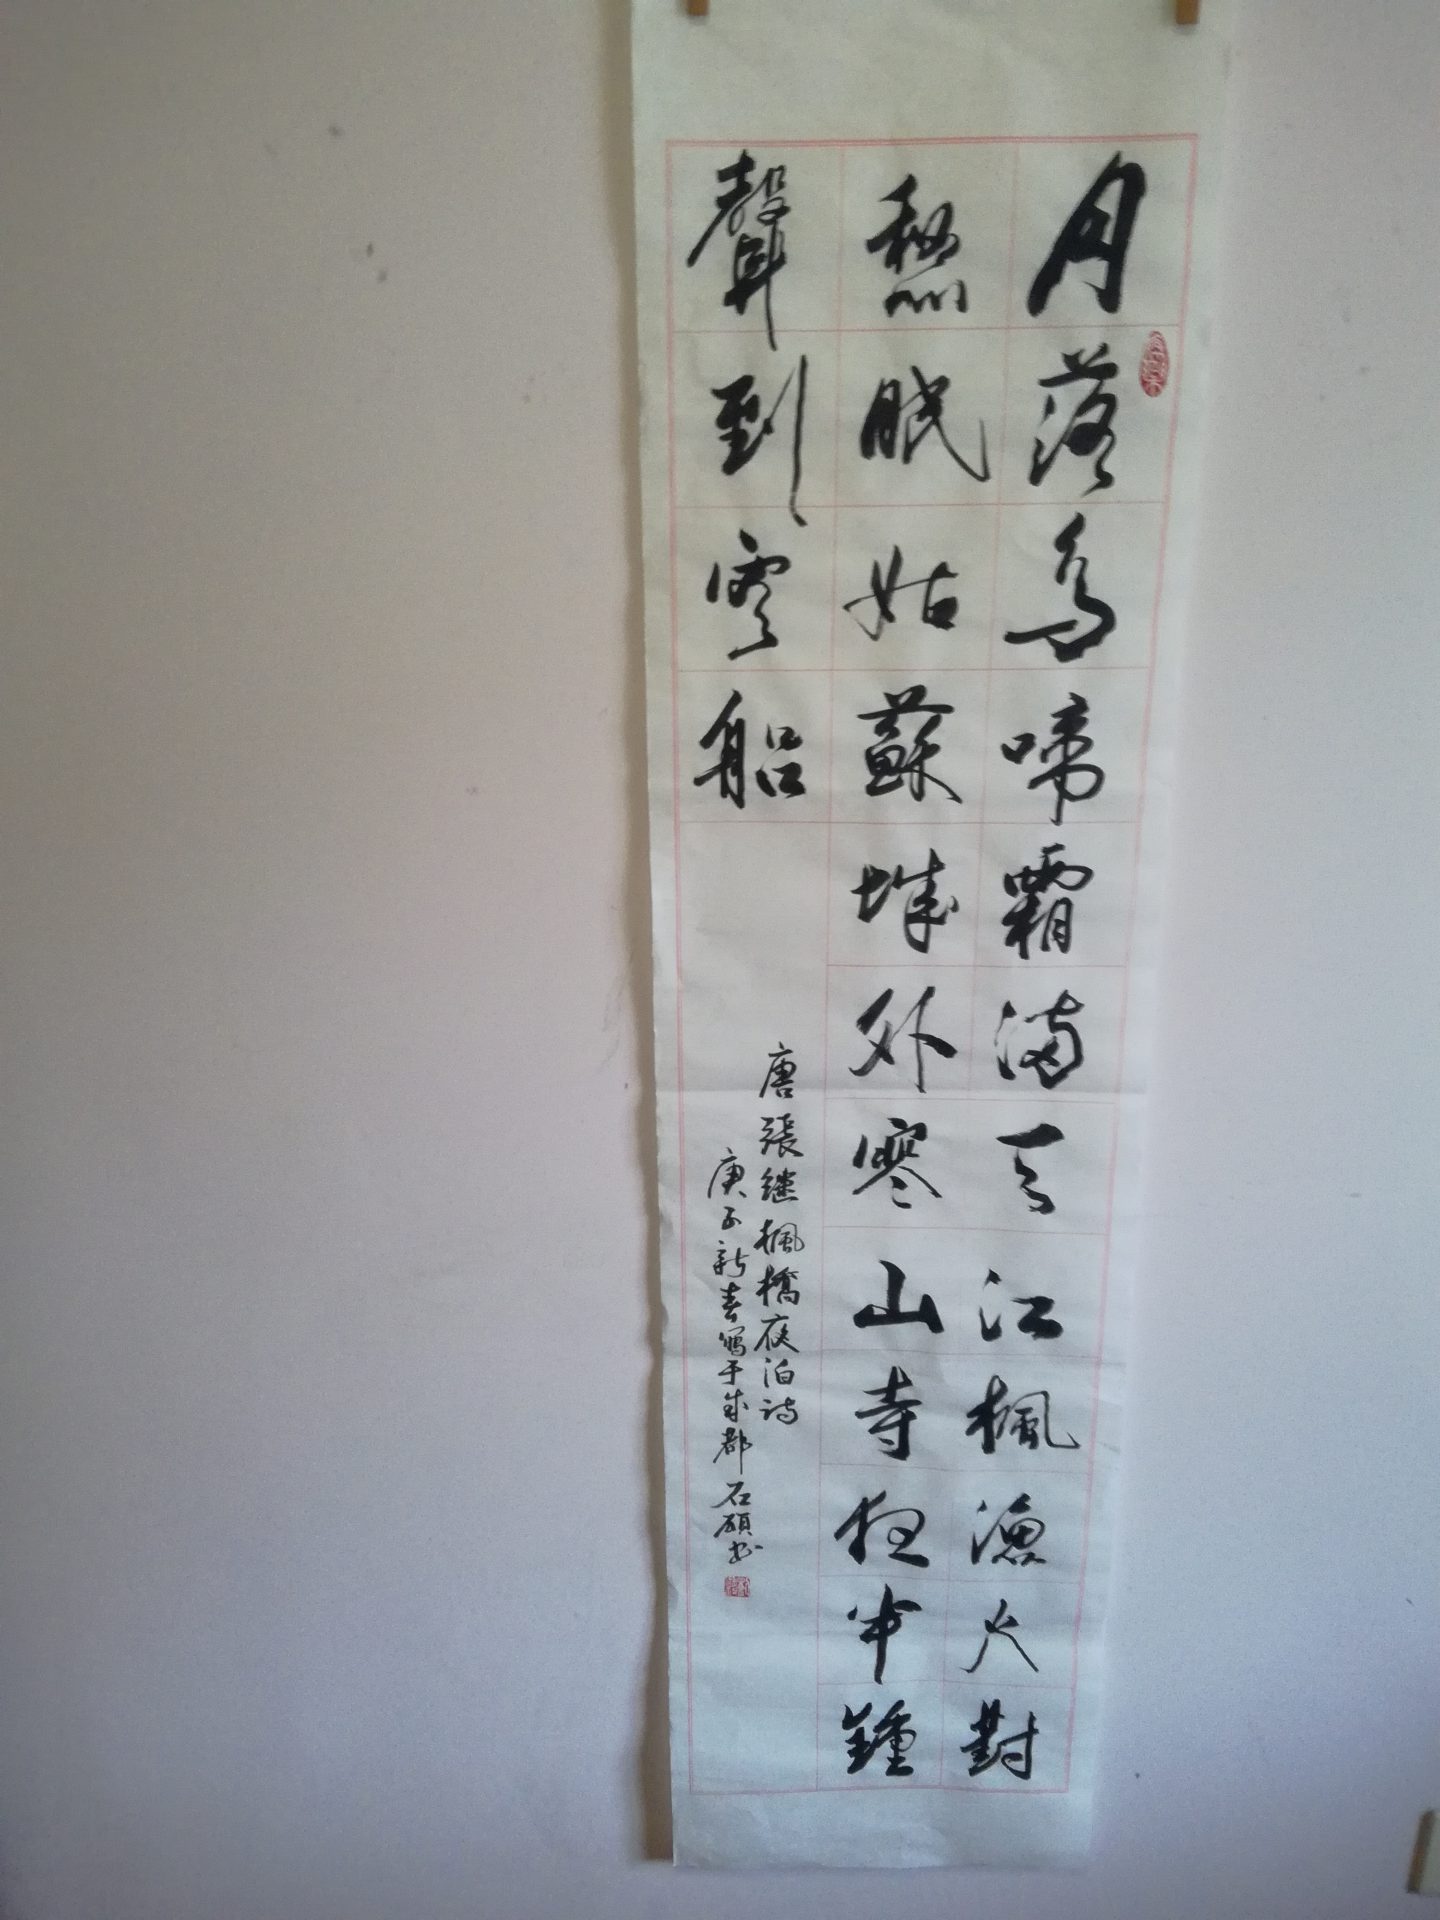 月落烏啼霜滿天江楓漁火對
愁眠姑蘇城外寒山寺夜半鍾
聲到客船
唐張继楓橋夜泊詩
庚子新春寫于成都石碩书